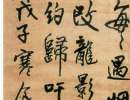 每遇烟
改龍影
約歸吁
戊子寒食